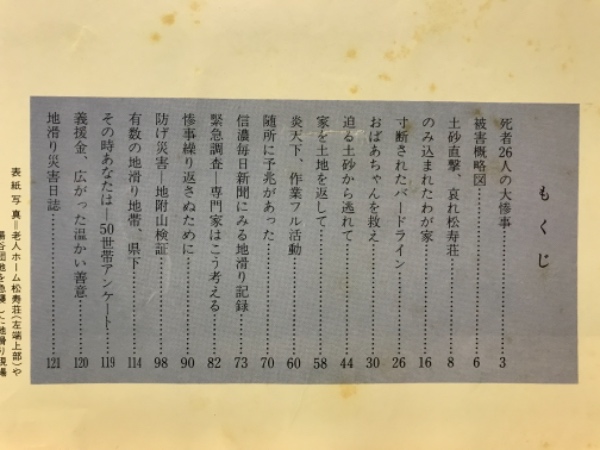 もくじ
死者26人の大惨事……………3
被害概略図……………6
土砂直撃、哀れ松寿荘……………8
のみ込まれたわが家……………16
寸断されたバードライン……………26
おばあちゃんを救え……………30
迫る土砂から逃れて……………44
家を土地を返して……………58
炎天下、作業フル活動……………60
随所に予兆があった……………70
信濃毎日新聞にみる地滑り記録……………73
緊急調査―専門家はこう考える……………82
惨事繰り返さぬために……………90
防げ災害―地附山検証……………98
有数の地滑り地帯、県下……………114
その時あなたは―50世帯アンケート……………119
義援金、広がった温かい善意……………120
地滑り災害日誌……………121
表紙写真＝老人ホーム松寿荘（左端上部）や
湯谷団地を急襲した地滑り現場